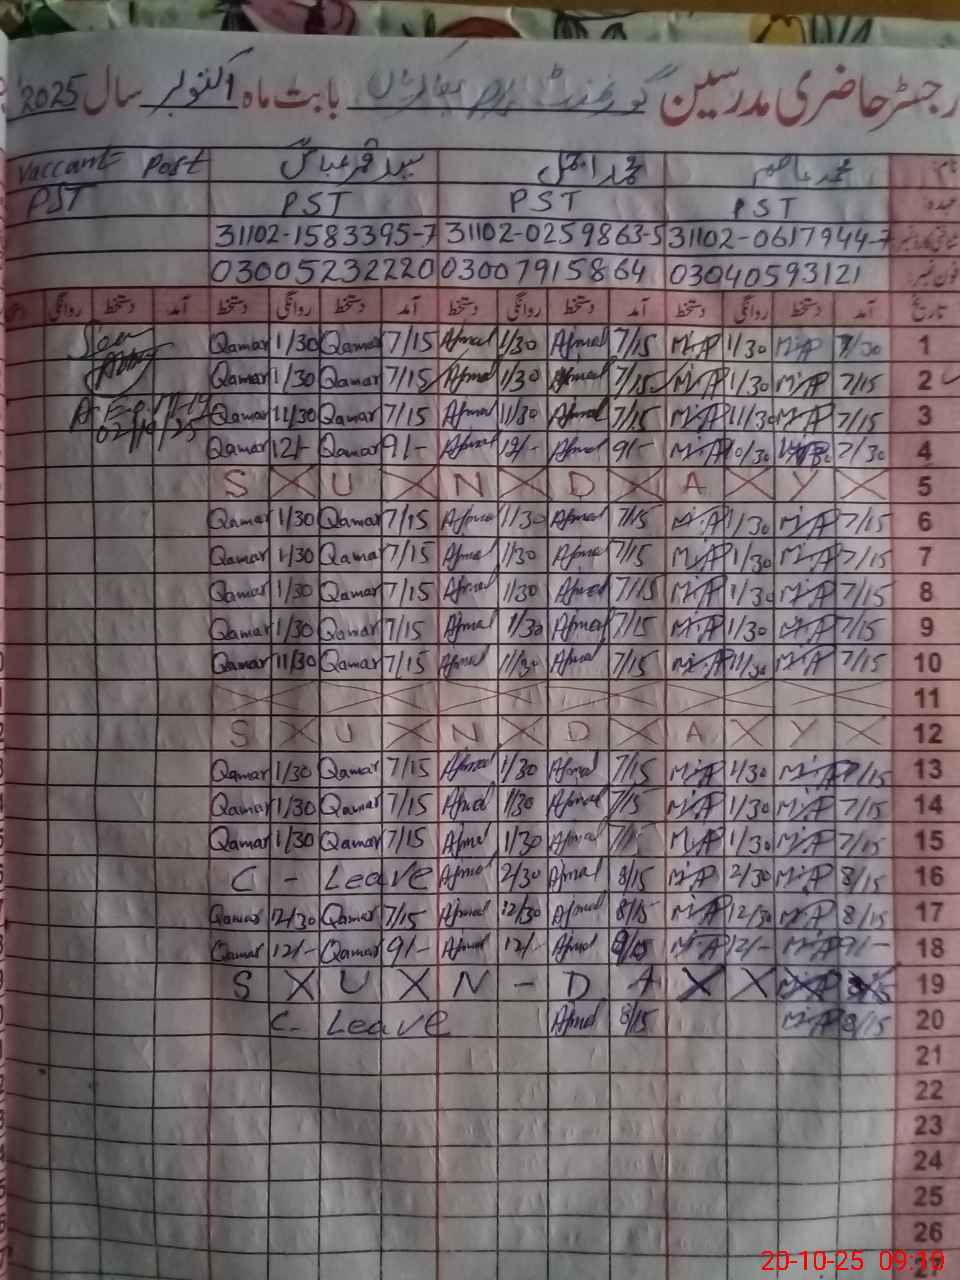 رجسٹر حاضری مدرسین گورنمنٹ بابت ماہ اکتوبر سال 2025
نام: محمد محمد اجمل سید قمر عباس Vaccant Post
عہدہ PST PST PST PST
شناختی کارڈ نمبر 31102-0617944-7 31102-0259863-5 31102-1583395-7
فون نمبر 03040593121 03007915864 03005232220
تاریخ آمد دستخط روانگی دستخط آمد دستخط روانگی دستخط آمد دستخط روانگی دستخط آمد دستخط روانگی دستخط
Qamar 1/30 Qamar 7/15 Ajmal 1/30 Ajmal 7/15 M.A 1/30 M.A 7/30 1
Qamar 1/30 Qamar 7/15 Ajmal 1/30 Ajmal 7/15 M.A 1/30 M.A 7/15 2
02/10/25 Qamar 11/30 Qamar 7/15 Ajmal 11/30 Ajmal 7/15 M.A 11/30 M.A 7/15 3
Qamar 12/- Qamar 9/- Ajmal 12/- Ajmal 9/- M.A 10/30 7/30 4
S X U X N X D X A X Y X 5
Qamar 1/30 Qamar 7/15 Ajmal 1/30 Ajmal 7/15 M.A 1/30 M.A 7/15 6
Qamar 1/30 Qamar 7/15 Ajmal 1/30 Ajmal 7/15 M.A 1/30 M.A 7/15 7
Qamar 1/30 Qamar 7/15 Ajmal 1/30 Ajmal 7/15 M.A 1/30 M.A 7/15 8
Qamar 1/30 Qamar 7/15 Ajmal 1/30 Ajmal 7/15 M.A 1/30 M.A 7/15 9
Qamar 11/30 Qamar 7/15 Ajmal 11/30 Ajmal 7/15 M.A 11/30 M.A 7/15 10
11
S X U X N X D X A X Y X 12
Qamar 1/30 Qamar 7/15 Ajmal 1/30 Ajmal 7/15 M.A 1/30 M.A 7/15 13
Qamar 1/30 Qamar 7/15 Ajmal 1/30 Ajmal 7/15 M.A 1/30 M.A 7/15 14
Qamar 1/30 Qamar 7/15 Ajmal 1/30 Ajmal 7/15 M.A 1/30 M.A 7/15 15
C - Leave Ajmal 2/30 Ajmal 8/15 M.A 2/30 M.A 8/15 16
Qamar 12/30 Qamar 7/15 Ajmal 12/30 Ajmal 8/15 M.A 12/30 M.A 8/15 17
Qamar 12/- Qamar 9/- Ajmal 12/- Ajmal M.A 12/- M.A 9/- 18
S X U X N - D A X X 19
C - Leave Ajmal 8/15 M.A 8/15 20
21
22
23
24
25
26
27
20-10-25 09:10